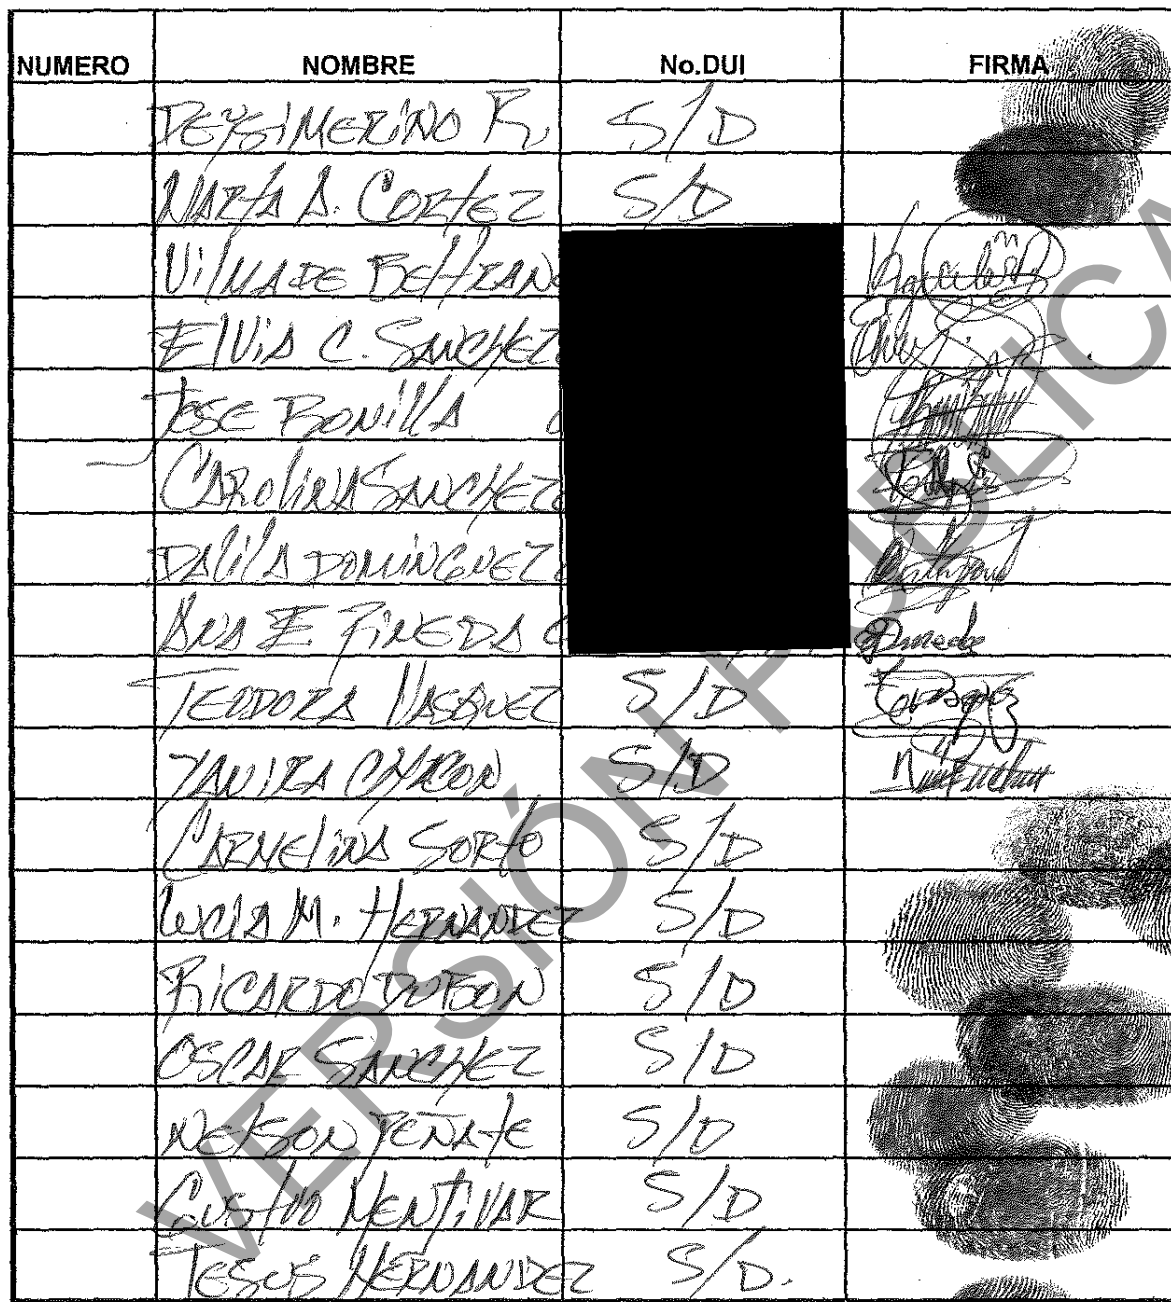 NUMERO NOMBRE No.DUI FIRMA
DEYSI MERINO R, S/D
MARTA A. CORTEZ S/D
VILMA DE BELTRAN
ELVIA C. SANCHEZ
JOSE BONILLA
CAROLINA SANCHEZ
DALILA DOMINGUEZ
ANA E. PINEDA
TEODORA VASQUEZ S/D
YANIRA CHACON S/D
CARMELINA SORTO S/D
LUCIA M. HERNANDEZ S/D
RICARDO S/D
OSCAR SANCHEZ S/D
NELSON PEÑATE S/D
GUSTAVO MENTIVAR S/D
JESUS HERNANDEZ S/D.
VERSIÓN PUBLICA